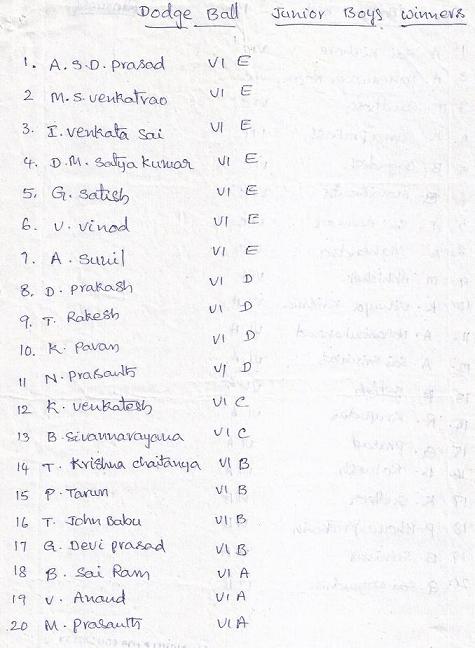 Dodge Ball Junior Boys Winners
1. A.S.D. prasad VI E
2 M.S. venkatrao VI E
3. I. venkata sai VI E
4. D.M. satya kumar VI E
5. G. satish VI E
6. V. vinod VI E
7. A. sunil VI E
8. D. prakash VI D
9. T. Rakesh VI D
10. K. pavan VI D
11 N. prasanth VI D
12 K. venkatesh VI C
13 B. sivannarayana VI C
14 T. Krishna chaitanya VI B
15 P. Tarun VI B
16 T. John Babu VI B
17 G. Devi prasad VI B
18 B. Sai Ram VI A
19 V. Anand VI A
20 M. prasanth VI A